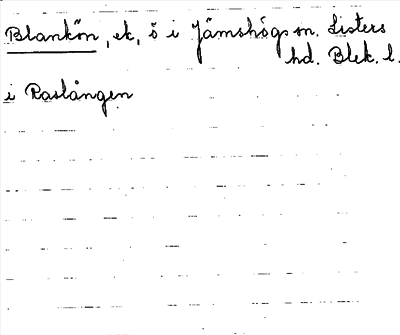 Blankön, ek, ö i Jämshögs sn. Listers
hd. Blek. l.
i Raslången